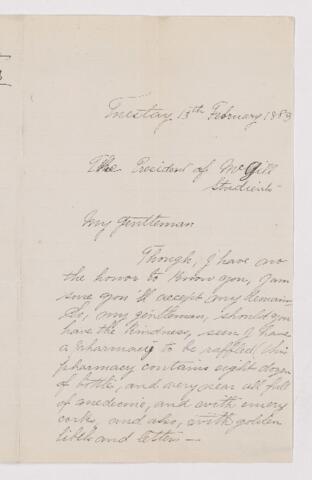 Tuesday 13th February 1883
The President of McGill
Students
My gentleman
Though, I have no
the honor to know you, I am
sure you'll accept my
So, my gentleman, should you
have the kindness, seen I have
a pharmacy to be raffled this
pharmacy contains eight dozen
of bottle, and very near all full
of medecine, and with emery
corks, and also, with golden
libels and letters —